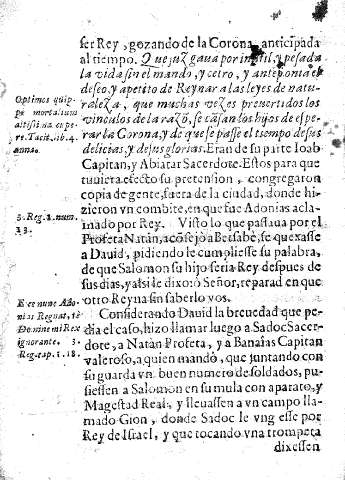 ser Rey, gozando de la Corona, anticipada
al tiempo. Que juzgaua por inutil, y pesada
la vida sin el mando, y cetro, y anteponia el
deseo, y apetito de Reynar a las leyes de natu-
raleza, que muchas vezes preuertidos los
vinculos de la razō, se cāsan los hijos de espe-
rar la Corona, y de que se passe el tiempo de sus
delicias, y de sus glorias. Eran de su parte Ioab
Capitan, y Abiatar Sacerdote. Estos para que
tuuiera efecto su pretension, congregaron
copia de gente, fuera de la ciudad, donde hi-
zieron vn combite, en que fue Adonias acla-
mado por Rey. Visto lo que passaua por el
Profeta Natán, acōsejo a Betsabè, se quexasse
a Dauid, pidiendole cumpliesse su palabra,
de que Salomon su hijo seria Rey despues de
sus dias, y alsi le dixo: ò Señor, reparad en que
otro Reyna sin saberlo vos.
Considerando Dauid la breuedad que pe-
dia el caso, hizo llamar luego a Sadoc Sacer-
dore, a Natán Profeta, y a Banaîas Capitan
valeroso, a quien mandò, que juntando con
su guarda vn buen numero de soldados, pu-
siessen a Salomon en su mula con aparato, y
Magestad Real, y lleuassen a vn campo lla-
mado Gion, donde Sadoc le vngiesse por
Rey de Israel, y que tocando vna trompeta
dixessen
Optimos quip-
pe mortalium
altissima cupe
re. Tacit. lib. 4.
anna.
3. Reg. 1. num.
13.
Ecce nunc Ado
nias Regnat, te
Domine mi Rex
ignorante. 3.
Reg. cap. 1. 18.